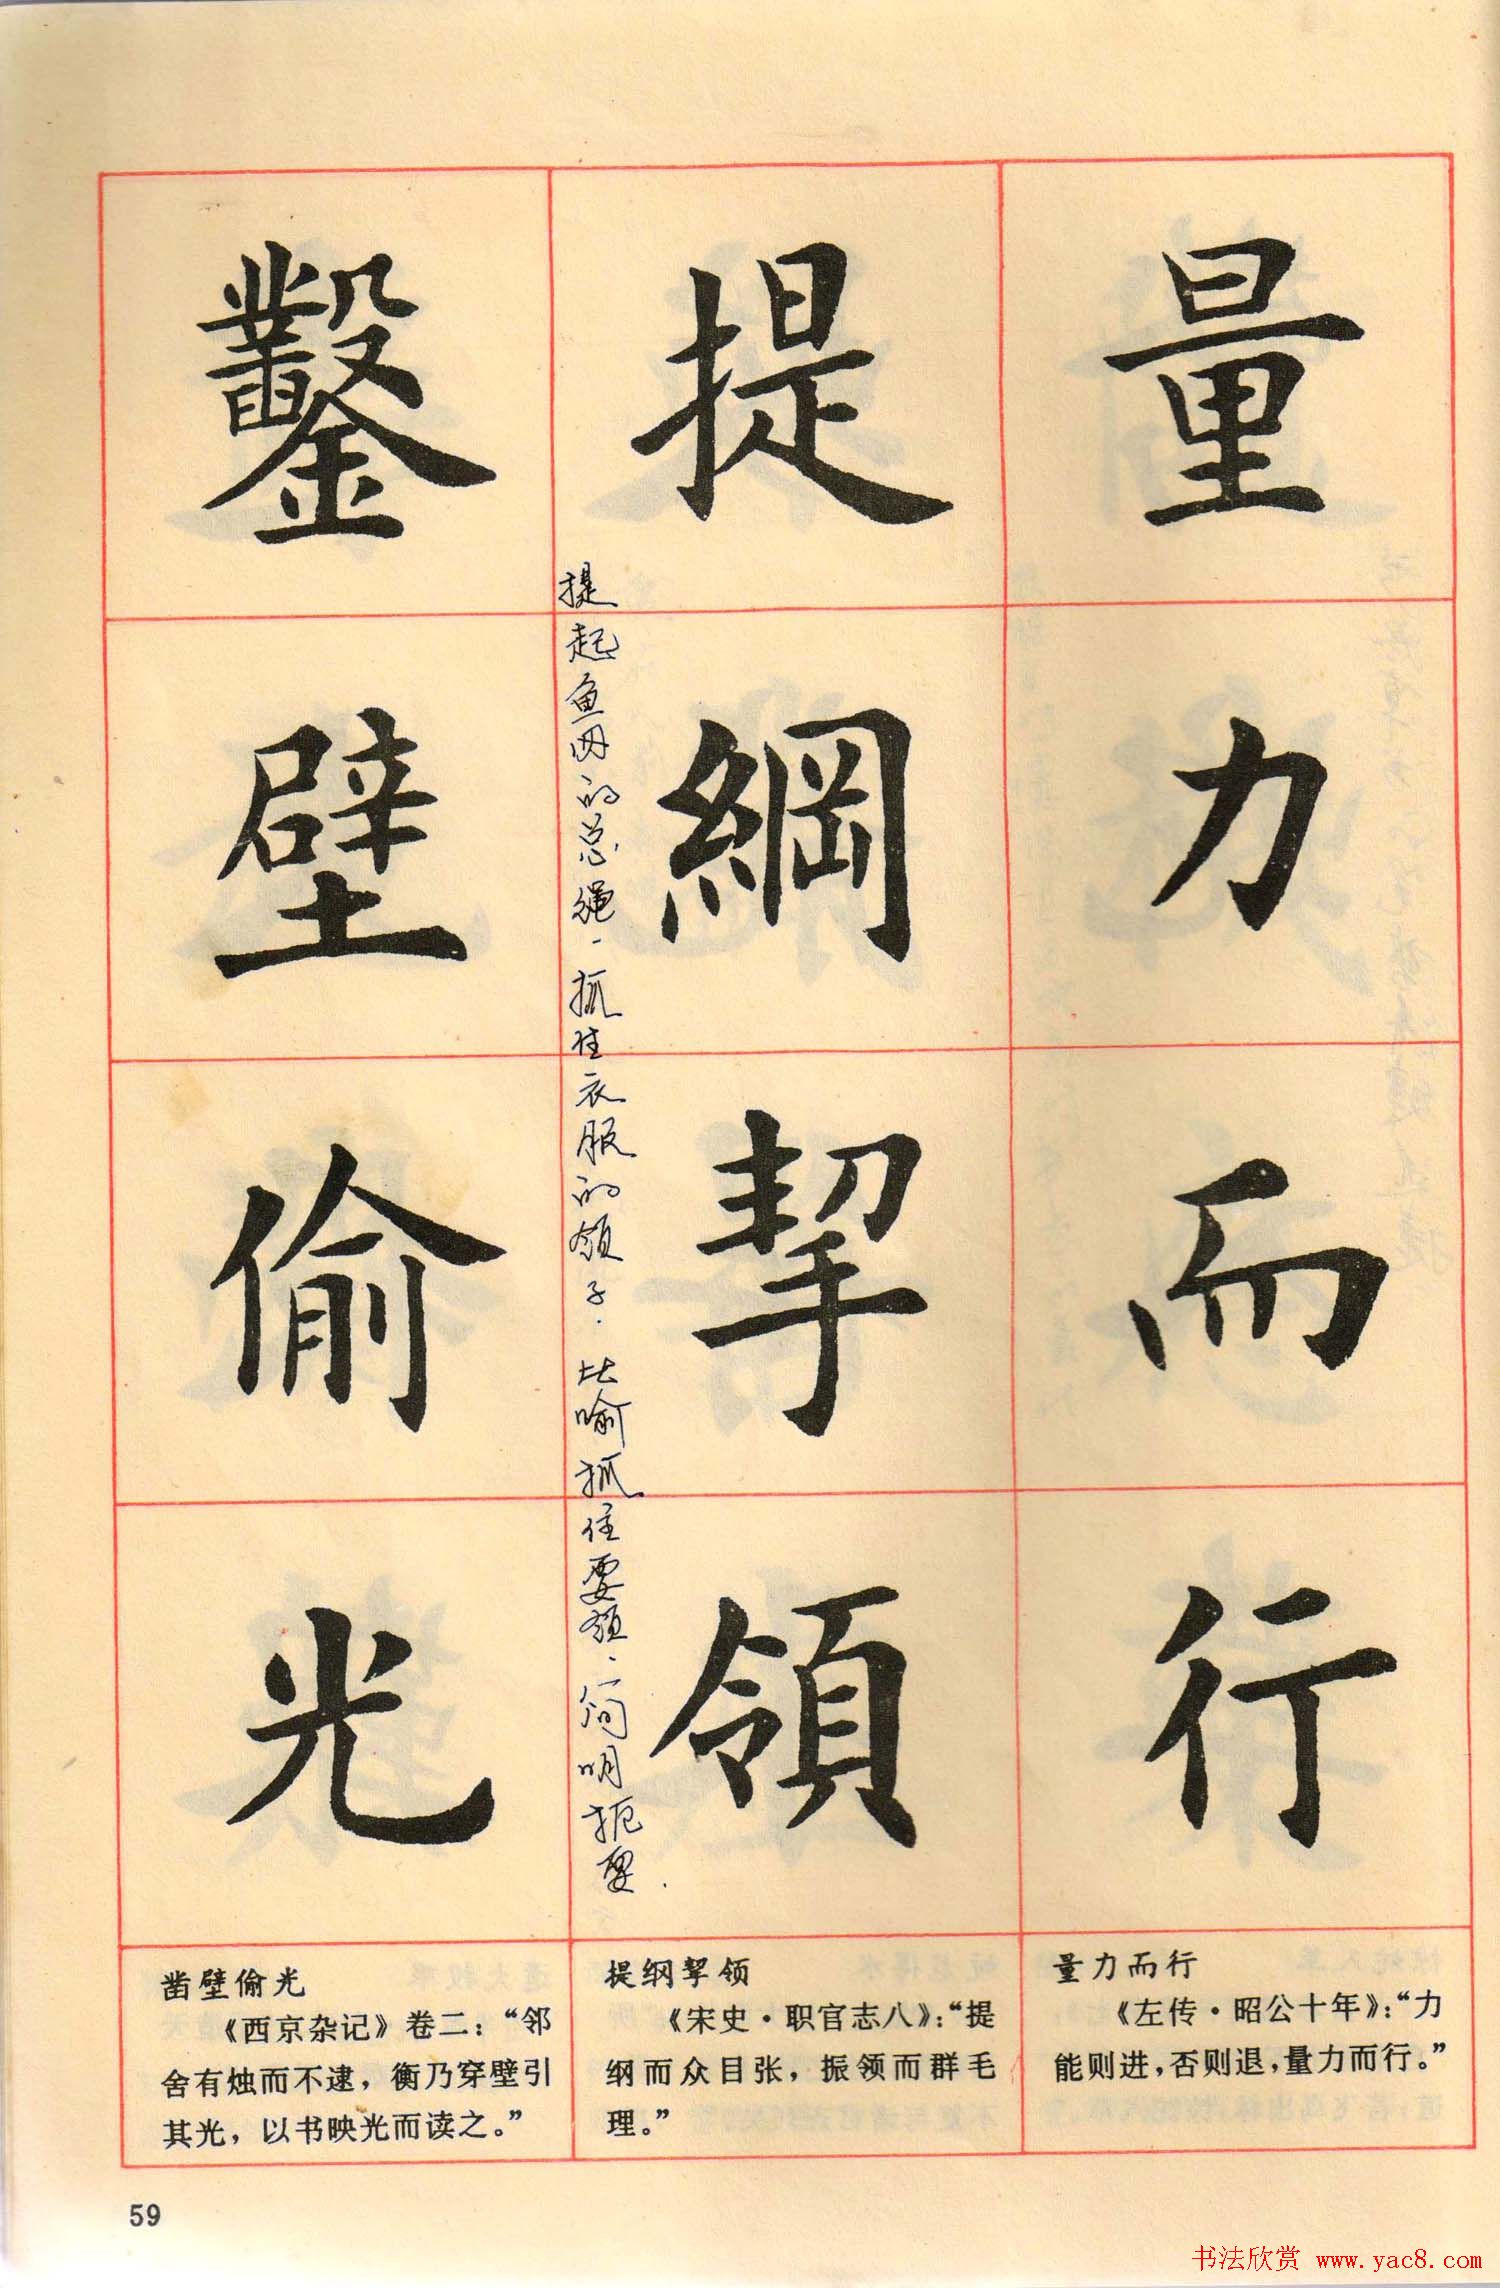 量力而行
提綱挈領
提起鱼网的总绳，抓住衣服的领子。比喻抓住要领，简明扼要。
鑿壁偷光
量力而行
《左传·昭公十年》：“力
能则进，否则退，量力而行。”
提纲挈领
《宋史·职官志八》：“提
纲而众目张，振领而群毛
理。”
凿壁偷光
《西京杂记》卷二：“邻
舍有烛而不逮，衡乃穿壁引
其光，以书映光而读之。”
59
书法欣赏 www.yac8.com